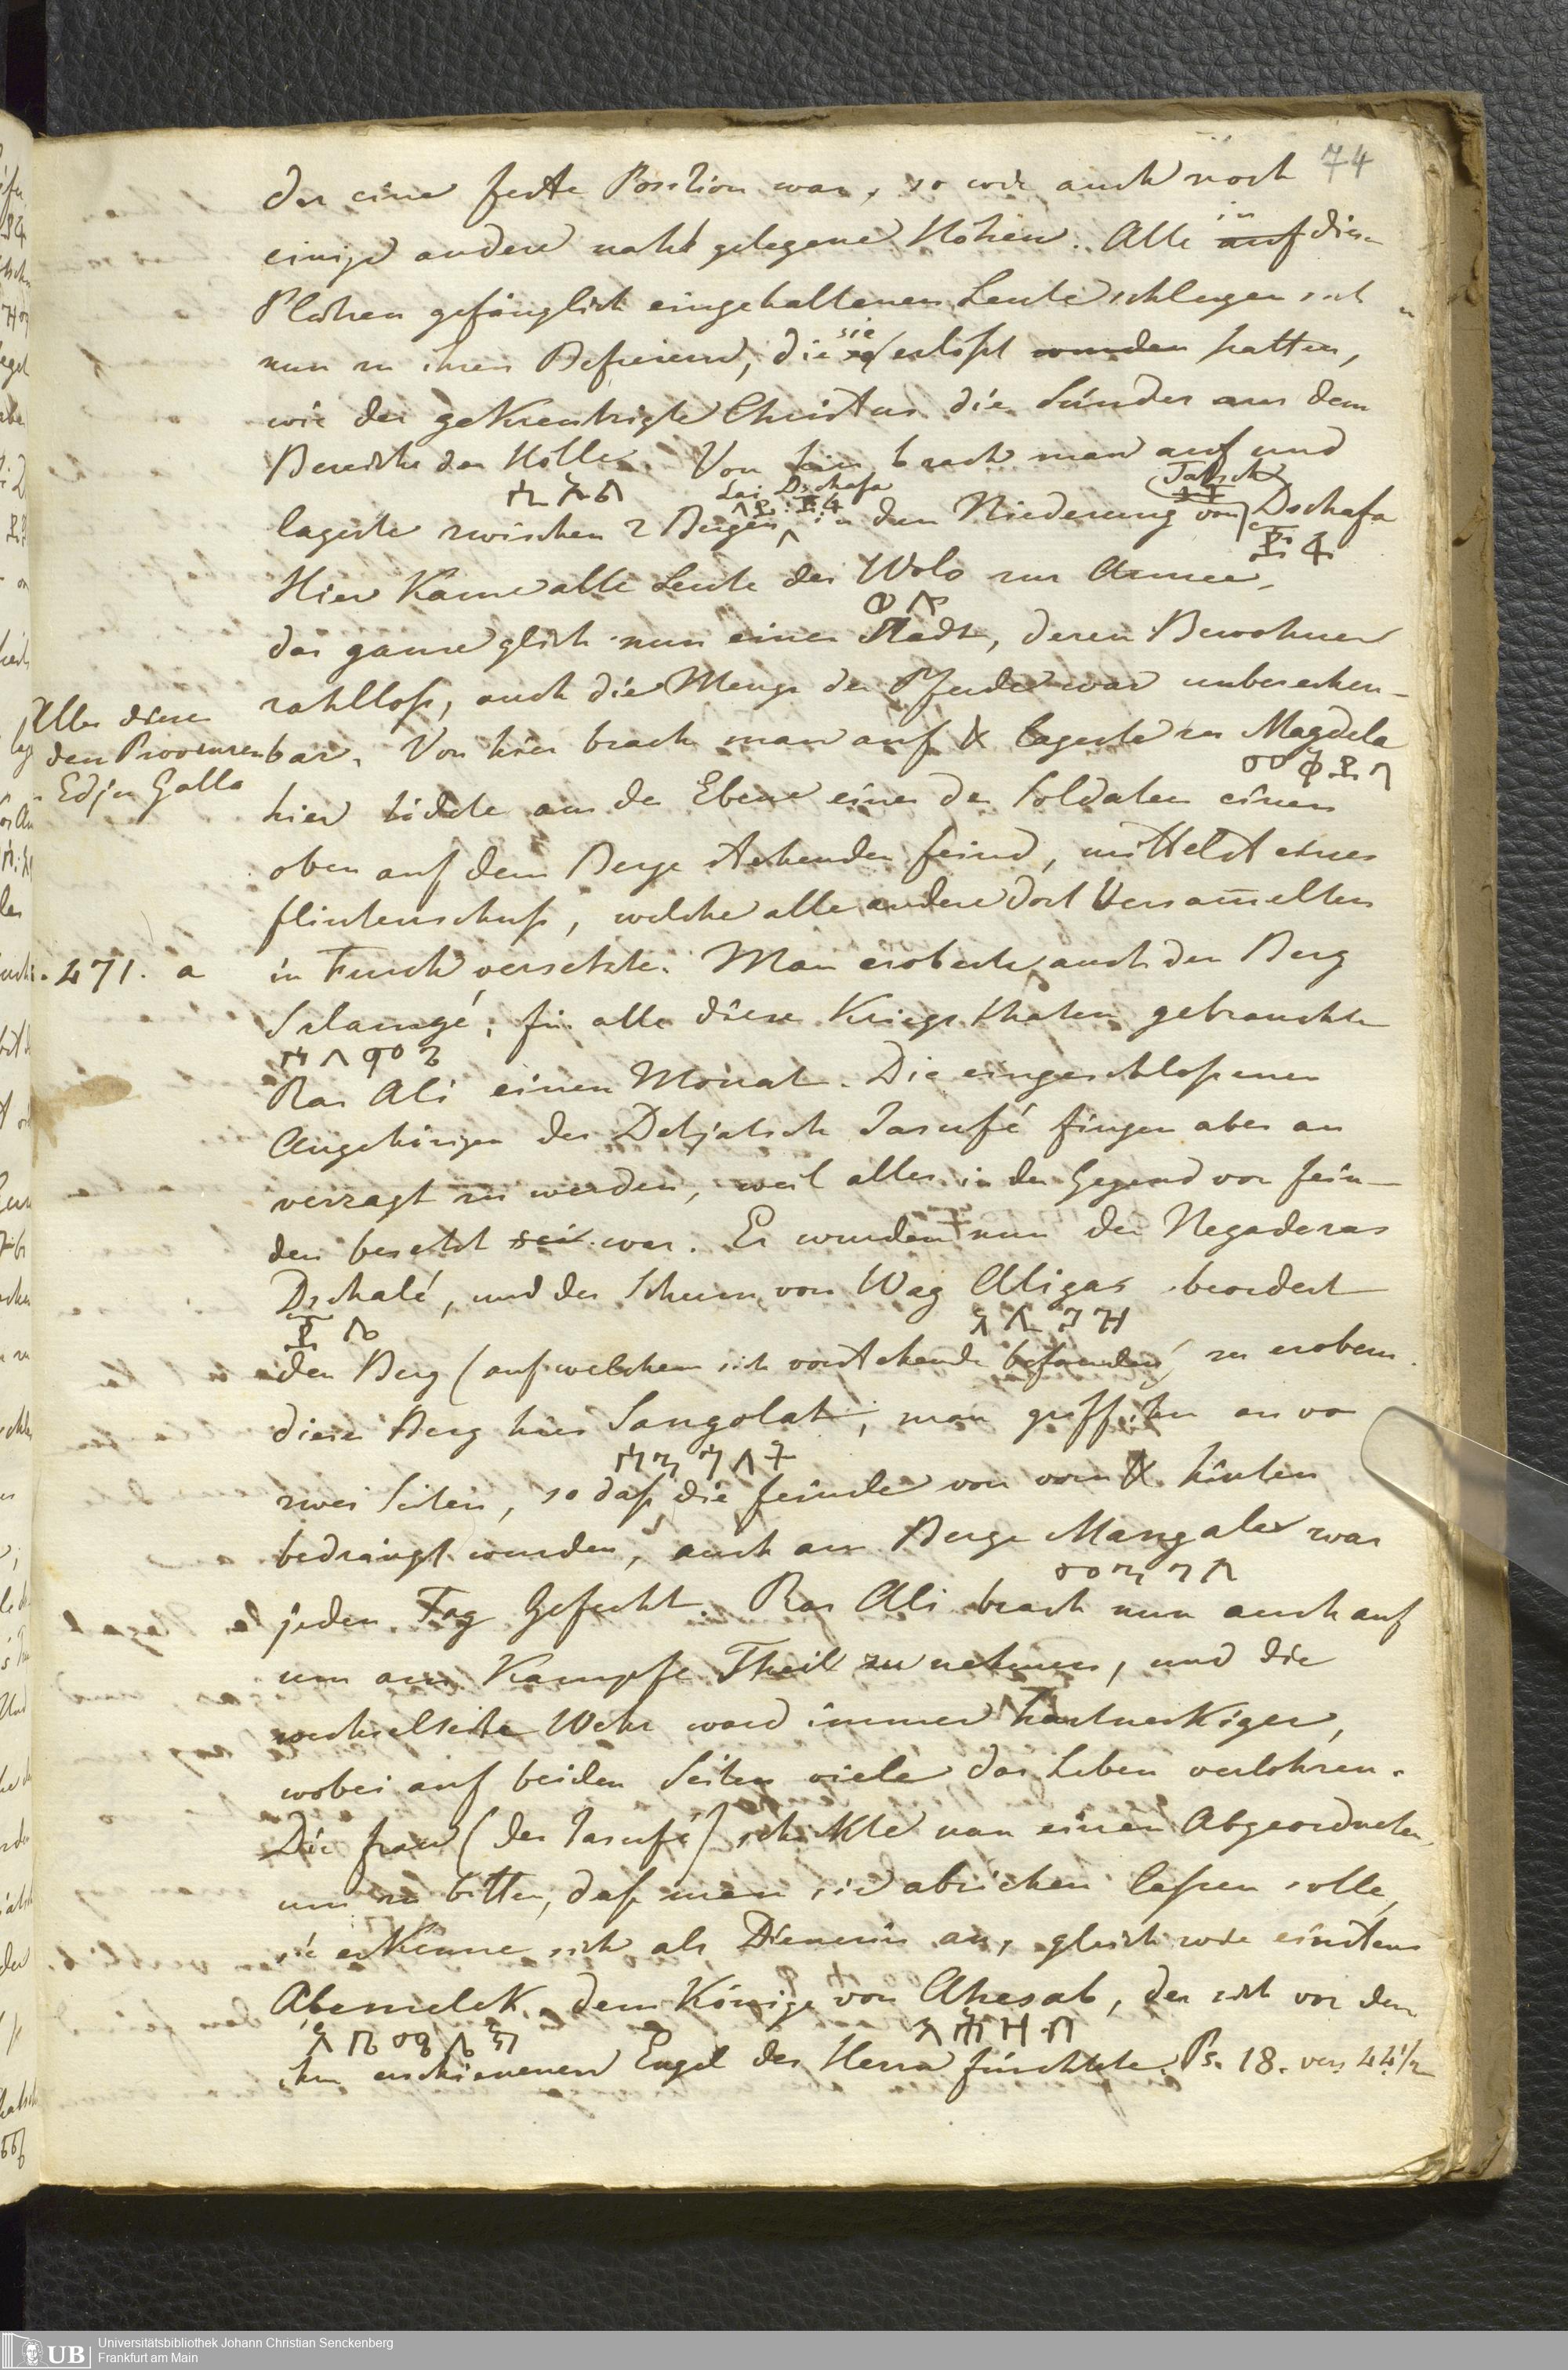 74
der eine feste Position war, so wie auch noch
einige andere nahe gelegene Höhen. Alle in auf diesen
Plätzen gefänglich eingehaltenen Leute schlugen sich
nun zu ihren Befreiern, die sie erlößt wurden hatten,
wie der gekreutzigte Christus die Sünder aus dem
Bereiche der Hölle. Von hier brach man auf und
lagerte zwischen 2 Bergen in den Niederung (Tatsch von) Dschafa
Lai Dschafa
Hier Kame alle Leute des Wolo zur Armee,
ወለ
das ganze glich nun einer Stadt, deren Bewohner
zahlloß, auch die Menge der Pferde war unberechen-
bar. Von hier brach man auf & lagerte zu Magdela
መቅደላ
Alles diese
den Provinzen
Edju Galla
hier tödete aus der Ebene einer der Soldaten einen
oben auf dem Berge stehenden Feind, mittelst eines
Flintenschuß, welche alle andere dort Versam̄elten
471. a
in Furch versetzte. Man eroberte auch den Berg
Salamgé, für alle diese Kriegsthaten gebrauchte
Ras Ali einen Monat. Die eingeschloßenen
Angehörigen des Detjatsch Jasufé fingen aber an
verzagt zu werden, weil alles in der Gegend von Fein-
den besetzt sei war. Es wurden nun der Negaderas
Dschalé, und der Schum von Wag Aligas beordert
ጀሌ
አሊጋዝ
den Berg (auf welchem sich vorstehende befanden) zu erobern.
dieser Berg hies Sangolat, man griff ihn an von
ሰንጎለት
zwei Seiten, so daß die Feinde von vorn & hinten
bedrängt wurden, auch am Berge Mangale war
jeden Tag Gefecht. Ras Ali brach nun auch auf
um am Kampfe Theil zu nehmen, und die
wechselseite Wehr ward immer hartneckiger,
wobei auf beiden Seiten viele das Leben verlohren.
Die Frau (des Jasufé) schickte nun einen Abgeordneten,
um zu bitten, daß man sie abziehen laßen solle,
sie erkenne sich als Dienerin an, gleich wie einstens
Abemelek, dem Könige von Ahesab, der sich vor dem
አቤሜሌክ
አሕዛብ
ihm erschienenen Engel des Herrn fürchtete. Ps. 18. vers 44½
UB Universitätsbibliothek Johann Christian Senckenberg
Frankfurt am Main